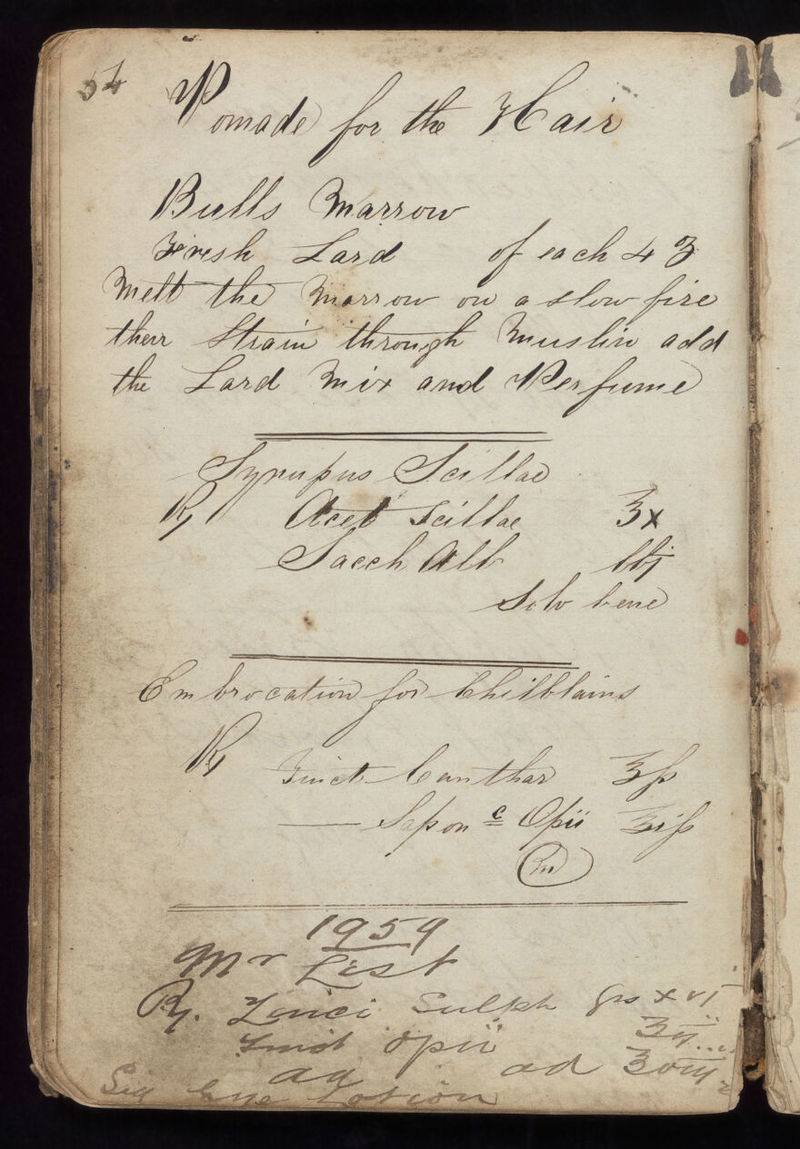 54
Pomade for the Hair
Bulls Marrow
Fresh Lard of each 4 ℥
Melt the Marrow on a slow fire
then Strain through Muslin add
the Lard Mix and Perfume
Syrupus Scillae
℞ Acet Scillae ℥x
Sacch Alb lbj
Solv bene
Embrocation for Chilblains
℞ Tinct Canthar ℥ſs
—— Sapon c Opii ℥iſs
m
1959
Mr List
℞. Zinci Sulph grs xvi
Tinct Opii
aq ad
Sig Eye Lotion